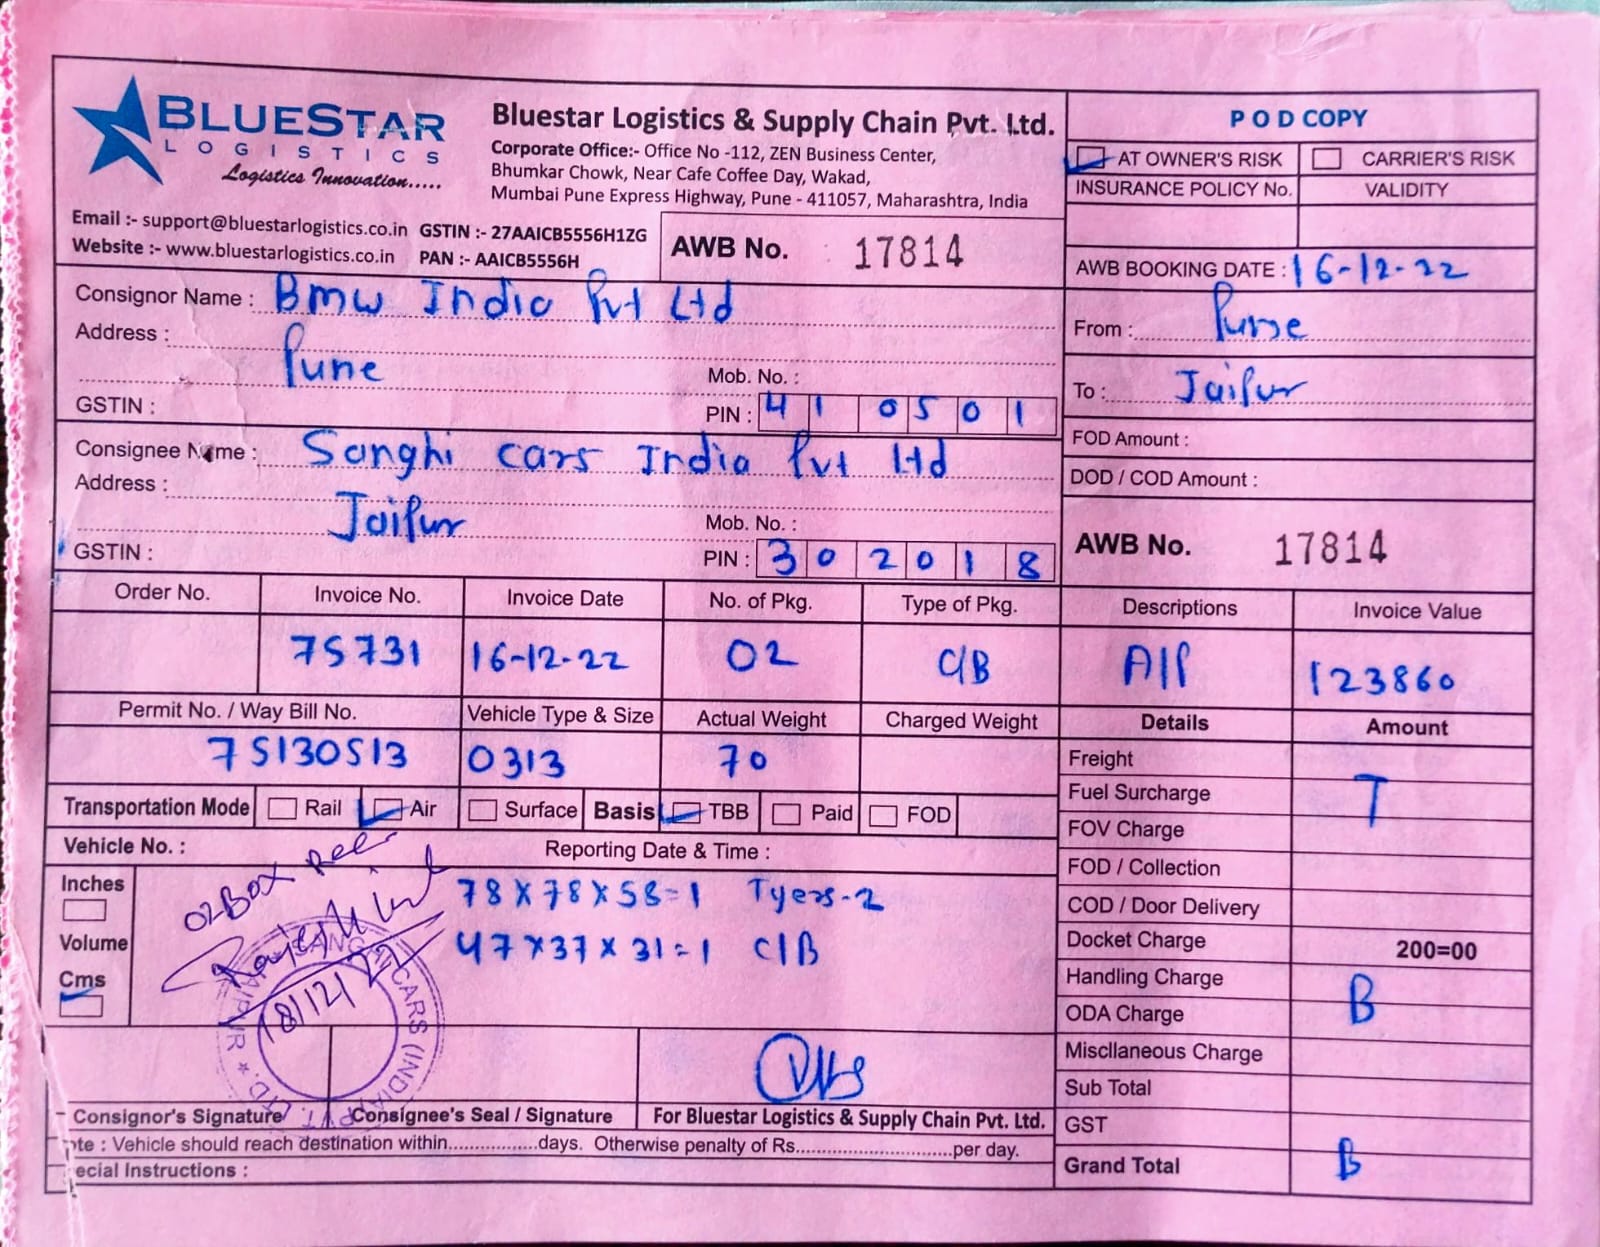 BLUESTAR
LOGISTICS
Logistics Innovation.....
Bluestar Logistics & Supply Chain Pvt. Ltd.
Corporate Office:- Office No -112, ZEN Business Center,
Bhumkar Chowk, Near Cafe Coffee Day, Wakad,
Mumbai Pune Express Highway, Pune - 411057, Maharashtra, India
Email :- support@bluestarlogistics.co.in GSTIN :- 27AAICB5556H1ZG
Website :- www.bluestarlogistics.co.in PAN :- AAICB5556H
AWB No. 17814
POD COPY
AT OWNER'S RISK CARRIER'S RISK
INSURANCE POLICY No. VALIDITY
AWB BOOKING DATE : 16-12-22
Consignor Name : Bmw India Pvt Ltd
Address :
Pune
Mob. No. :
GSTIN : PIN : 410501
From : Pune
To : Jaipur
FOD Amount :
DOD / COD Amount :
Consignee Name : Sanghi cars India Pvt Ltd
Address :
Jaipur
Mob. No. :
GSTIN : PIN : 302018
AWB No. 17814
Order No. Invoice No. Invoice Date No. of Pkg. Type of Pkg. Descriptions Invoice Value
75731 16-12-22 02 C/B A/P 123860
Permit No. / Way Bill No. Vehicle Type & Size Actual Weight Charged Weight Details Amount
75130513 0313 70
Transportation Mode Rail Air Surface Basis TBB Paid FOD
Vehicle No. : Reporting Date & Time :
Inches
Volume
Cms
02 Box
18/12/22
78 x 78 x 58 = 1 Tyers-2
47 x 37 x 31 = 1 C/B
Freight
Fuel Surcharge T
FOV Charge
FOD / Collection
COD / Door Delivery
Docket Charge 200=00
Handling Charge
B
ODA Charge
Miscllaneous Charge
Sub Total
GST
Grand Total B
Consignor's Signature Consignee's Seal / Signature For Bluestar Logistics & Supply Chain Pvt. Ltd.
: Vehicle should reach destination within.................days. Otherwise penalty of Rs.............................per day.
Instructions :
CARS (INDIA) PVT. LTD. * JAIPUR *